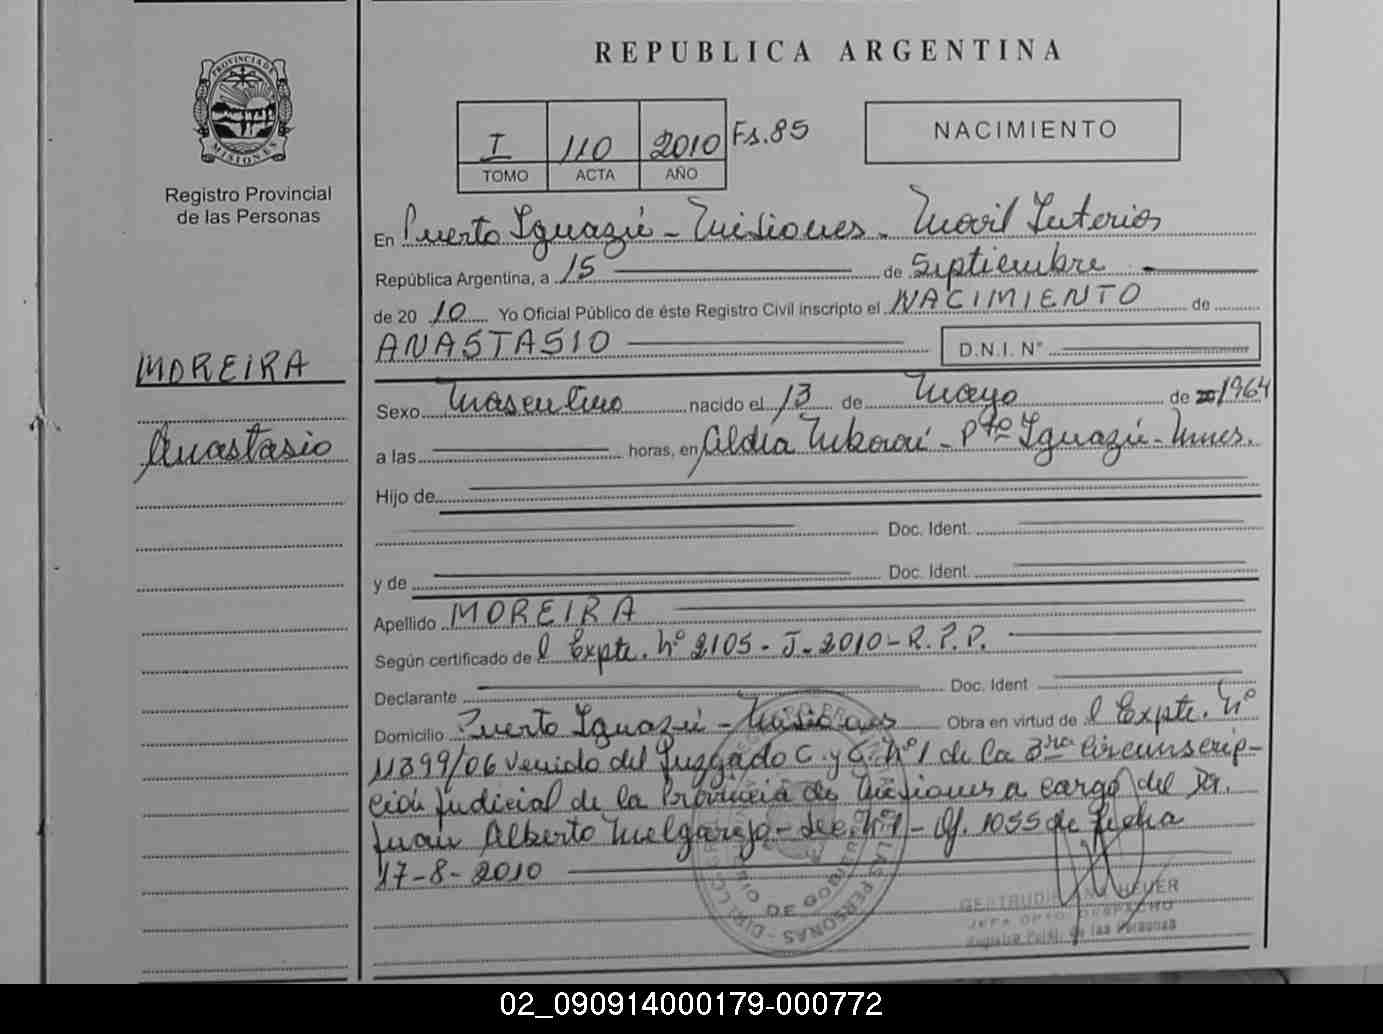 REPUBLICA ARGENTINA
PROVINCIA DE
MISIONES
Registro Provincial
de las Personas
I 110 2010 Fs. 85
TOMO ACTA AÑO
NACIMIENTO
En Puerto Iguazú - Misiones - Movil Interior
República Argentina, a 15 de Septiembre
de 20 10 Yo Oficial Público de éste Registro Civil inscripto el NACIMIENTO de
ANASTASIO D.N.I. N°
MOREIRA
Anastasio
Sexo Masculino nacido el 13 de Mayo de 1964
a las horas, en Aldea - Pto Iguazú - Mnes.
Hijo de
Doc. Ident.
y de Doc. Ident.
Apellido MOREIRA
Según certificado de l Expte. Nº 2105 - J - 2010 - R.P.P.
Declarante Doc. Ident
Domicilio Puerto Iguazú - Misiones Obra en virtud de l Expte. Nº
11399/06 venido del Juzgado C. y C. Nº 1 de la 3ra Circunscrip-
ción Judicial de la Provincia de Misiones a cargo del Dr.
Juan Alberto Melgarejo - Sec. Nº 1 - Of. 1055 de fecha
17-8-2010
DE LAS PERSONAS
JEFA DPTO. DESPACHO
Registro Pcial. de las Personas
02_090914000179-000772